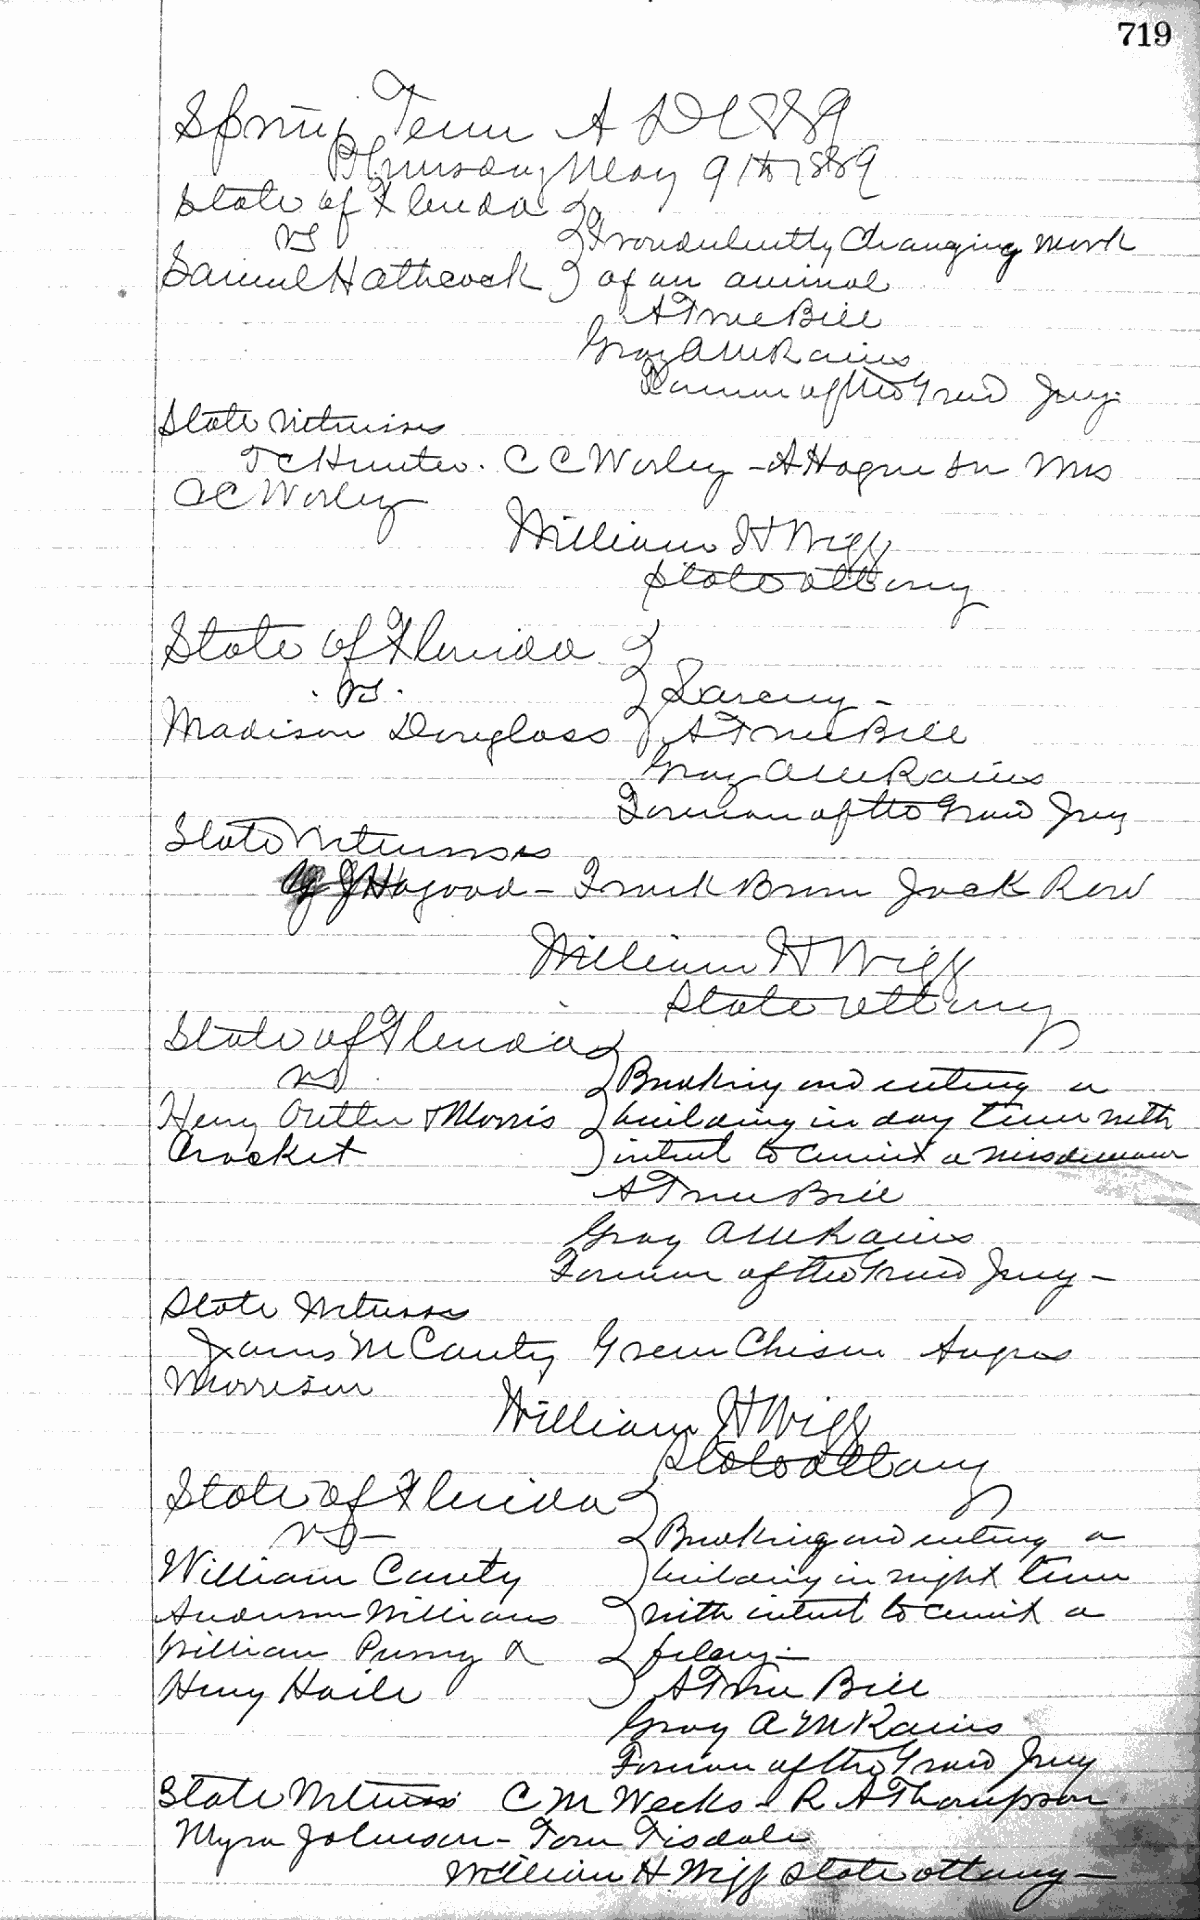 719
Spring Term A D 1889
Thursday May 9th 1889
State of Florida
vs
Fraudulently Changing mark
Samuel Hathcock of an animal
A True Bill
Gray A McRaines
Forman of the Grand Jury
State Witnesses
T C Hunter. C C Worley - A Hogue Mrs
C C Worley
William H Wigg
State attorney
State of Florida
vs.
Larceny -
Madison Douglass A True Bill
Gray A McRaines
Forman of the Grand Jury
State Witnesses
J Hagood - Frank Brown Jack Row
William H Wigg
State attorney
State of Florida
vs
Breaking and entering a
Henry Outler & Morris building in day time with
Crocket intent to commit a misdemeanor
A True Bill
Gray A McRaines
Forman of the Grand Jury -
State Witnesses
James McCanty Green Chison
Morrison
William H Wigg
State attorney
State of Florida
vs -
Breaking and entering a
William Canty building in night time
Anderson Williams with intent to commit a
William Pursy & felony -
Henry Haile A True Bill
Gray A McRaines
Forman of the Grand Jury
State Witness C M Weeks - R A Thompson
Myra Johnson - Tom Tisdale
William H Wigg State attorney -